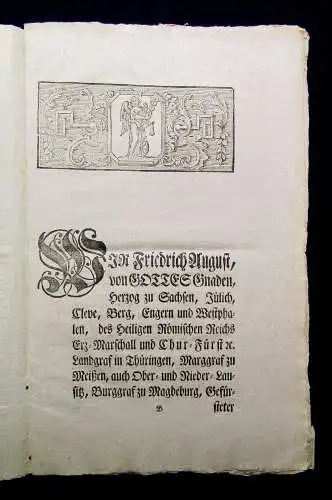 WIR Friedrich August,
von GOTTES Gnaden,
Herzog zu Sachsen, Jülich,
Cleve, Berg, Engern und Westpha-
len, des Heiligen Römischen Reichs
Ertz-Marschall und Chur-Fürst ꝛc.
Landgraf in Thüringen, Marggraf zu
Meißen, auch Ober- und Nieder-Lau-
sitz, Burggraf zu Magdeburg, Gefür-
B
steter